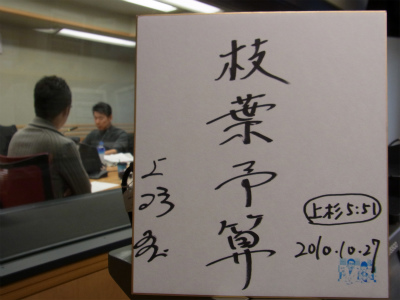 枝葉予算
上杉 隆
上杉5:51
2010.10.27